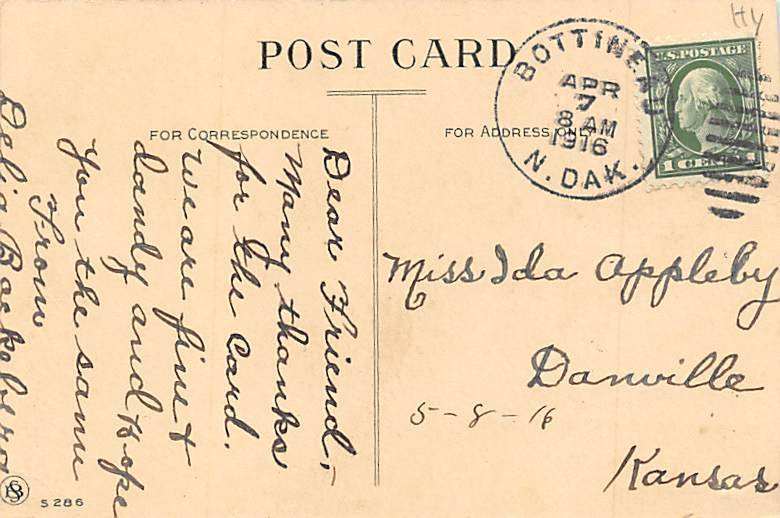 POST CARD
HY
BOTTINEAU
APR
7
8 AM
1916
N. DAK.
U.S. POSTAGE
1 CENT 1
FOR CORRESPONDENCE
FOR ADDRESS ONLY
Dear Friend,-
Many thanks
for the card.
We are fine &
dandy and hope
you the same
From
Delia
Miss Ida Appleby
Danville
Kansas
5-8-16
S 286